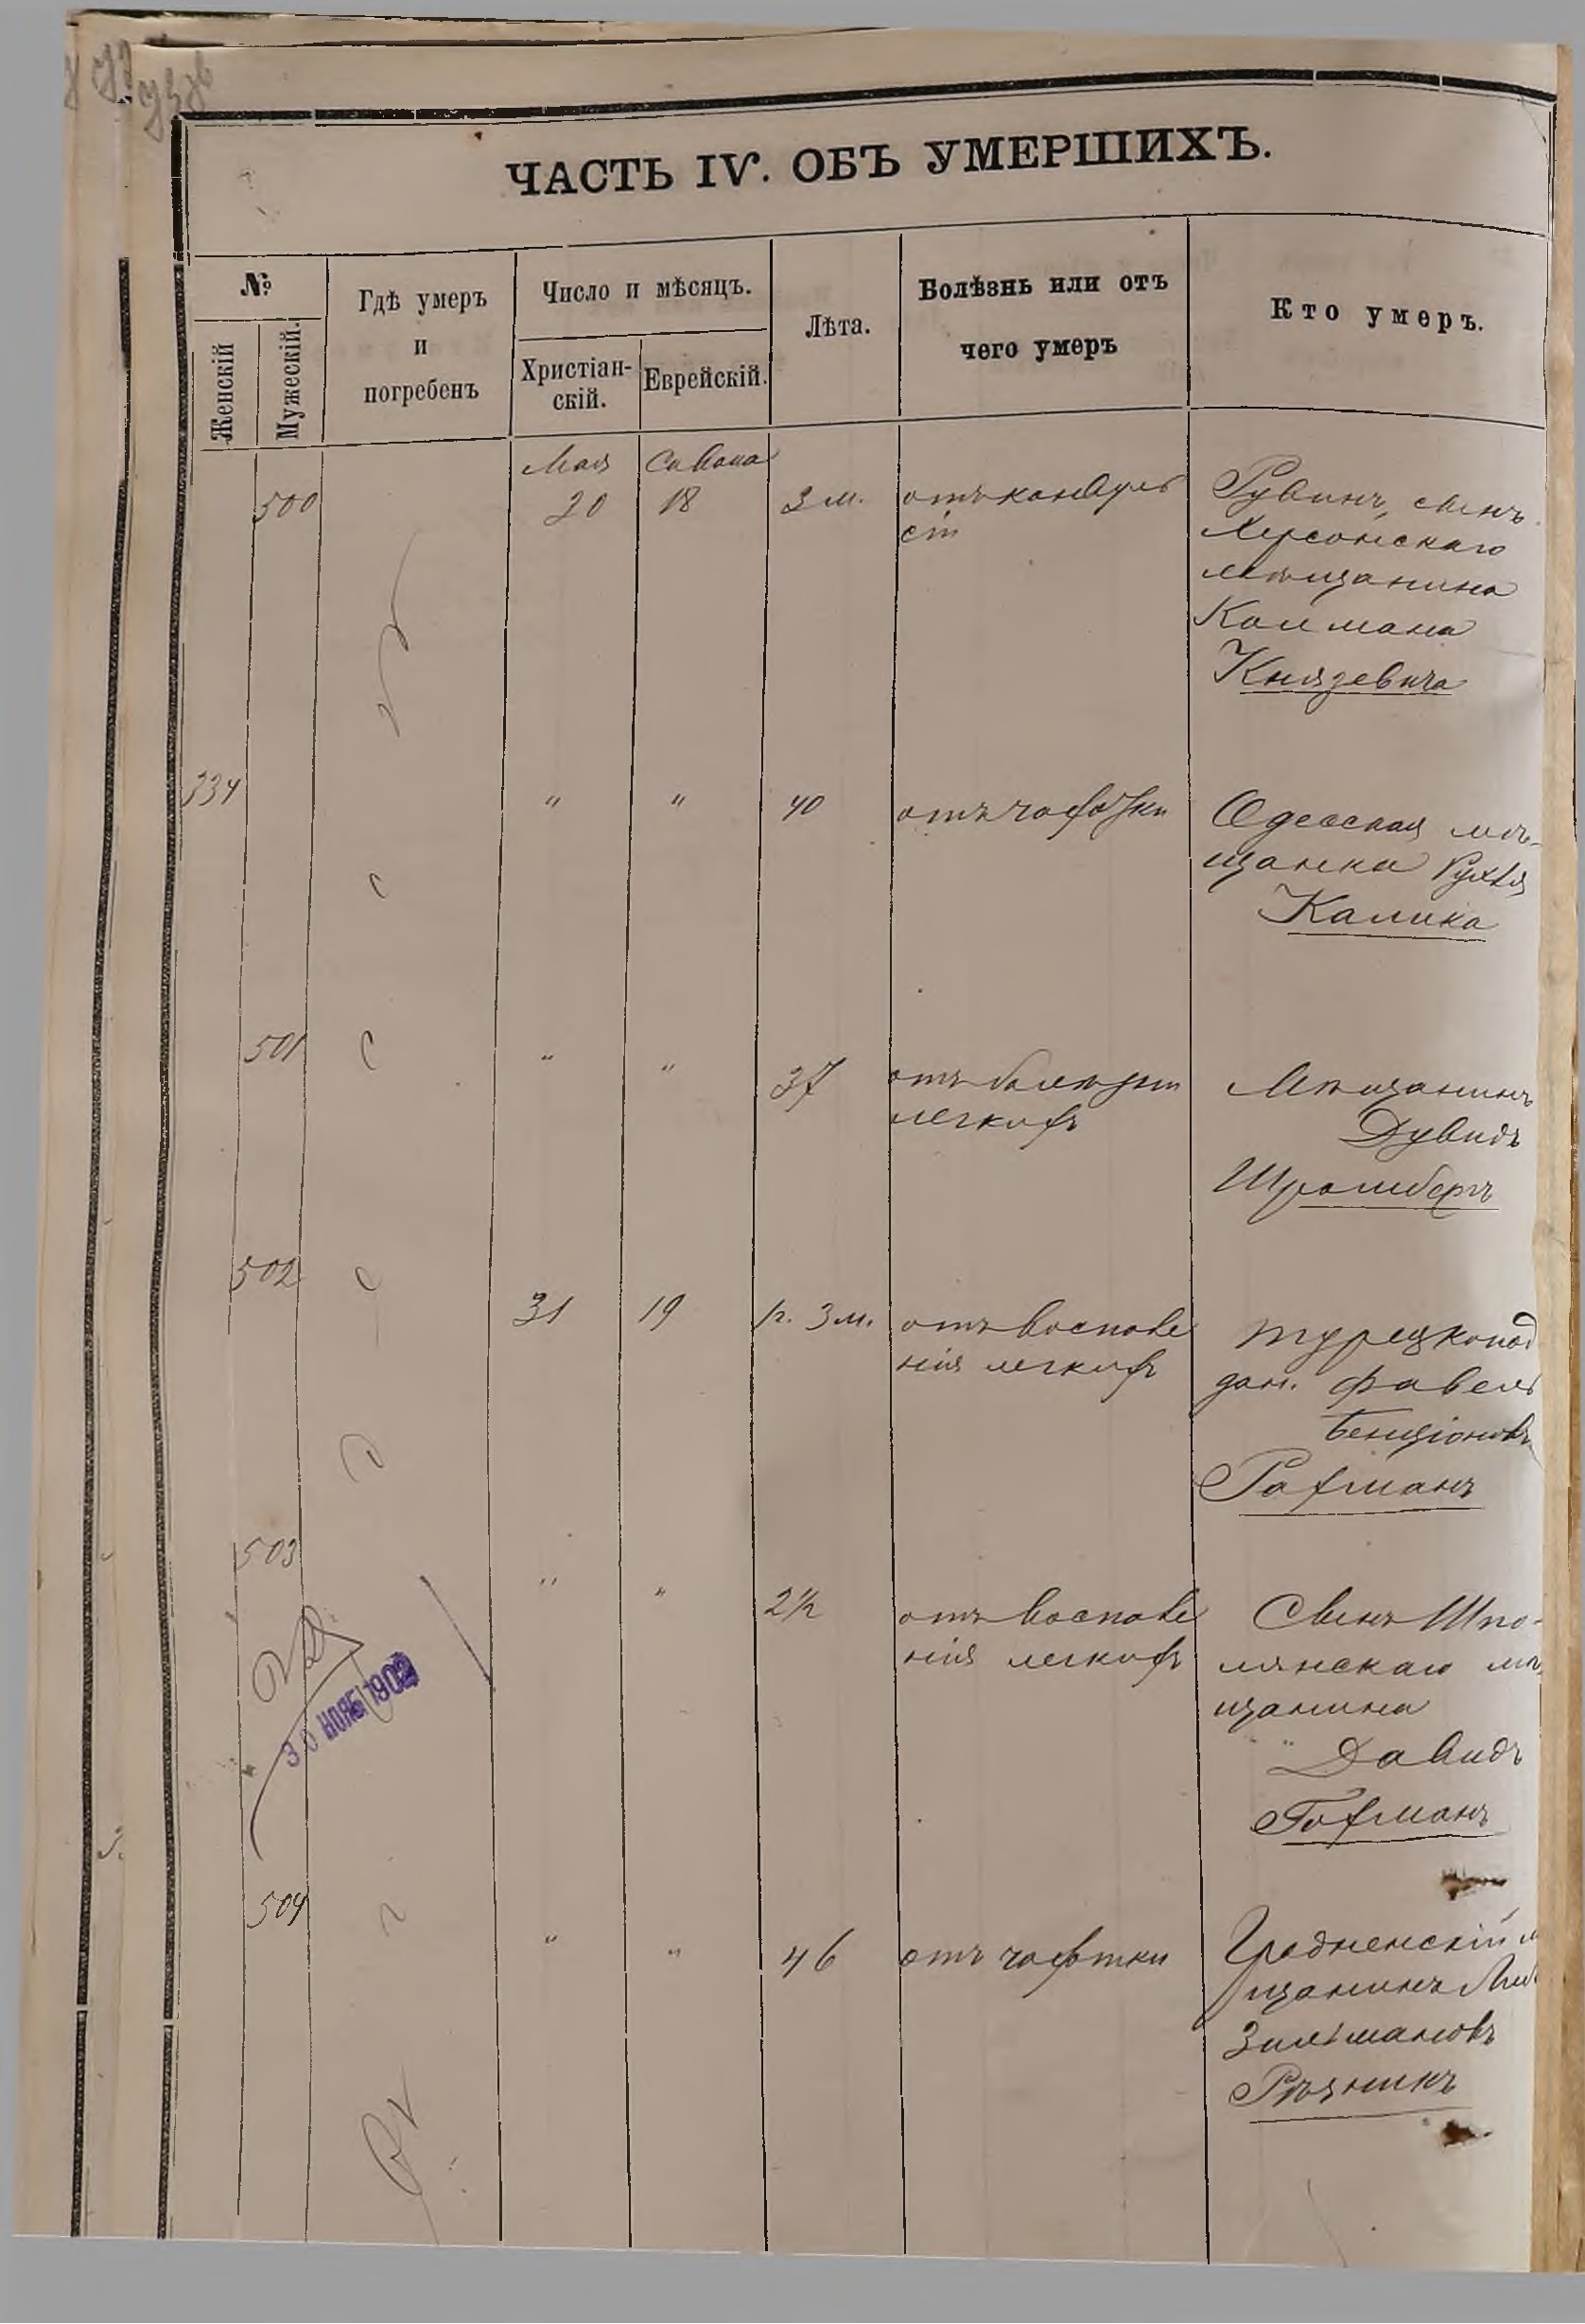 ЧАСТЬ IV. ОБЪ УМЕРШИХЪ.
№
Женскій
Мужескій.
Гдѣ умеръ
и
погребенъ
Число и мѣсяцъ.
Христіан-
скій.
Еврейскій.
Лѣта.
Болѣзнь или отъ
чего умеръ
Кто умеръ.
Мая
Сивана
500
20
18
3 м.
отъ конвуль
сіи
Рувинъ, сынъ
Херсонскаго
мѣщанина
Калмана
Князевича
334
"
"
40
отъ чахотки
Одесская мѣ-
щанка Рухля
Калика
501
"
"
37
отъ болѣзни
легкихъ
Мѣщанинъ
Дувидъ
502
31
19
1г. 3 м.
отъ воспале
нія легкихъ
турецкопод
дан. Фавель
Бенціоновъ
503
"
"
2½
отъ воспале
нія легкихъ
Сынъ Шпо-
лянскаго мѣ
щанина
Давидъ
Гофманъ
30 НОЯБ 1902
504
"
"
46
отъ чахотки
Гродненскій м
щанинъ
Зильмановъ
Рѣзникъ